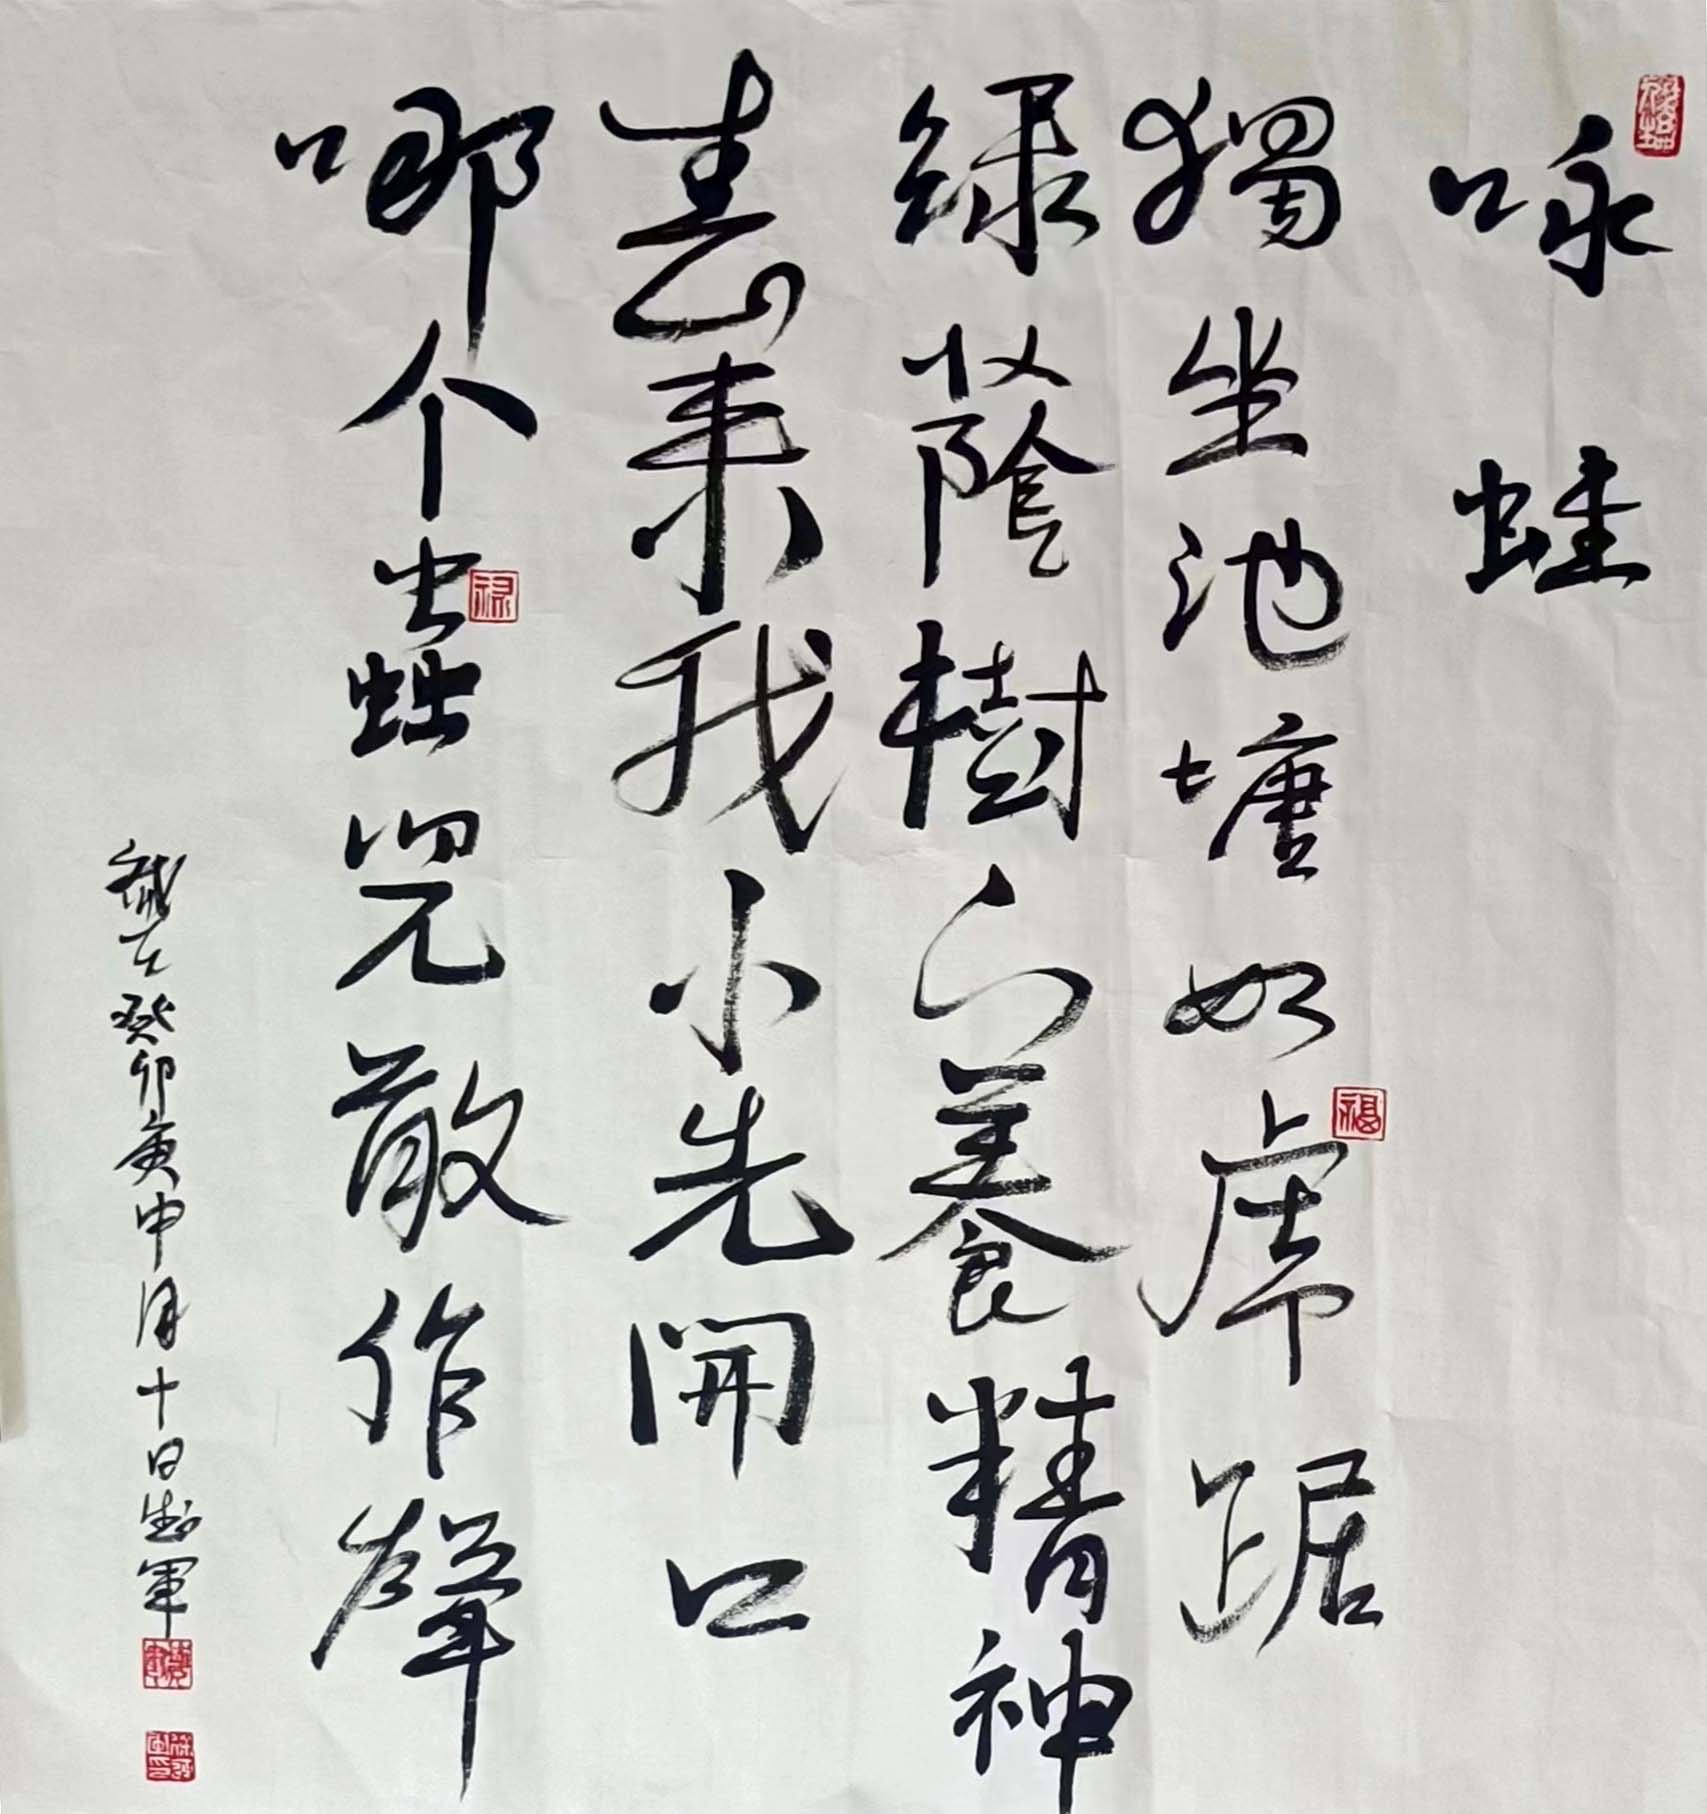 咏蛙
獨坐池塘如虎踞
绿蔭樹下養精神
春来我不先開口
哪个蟲兒敢作聲
歲在癸卯庚申月十日軍
福
禄